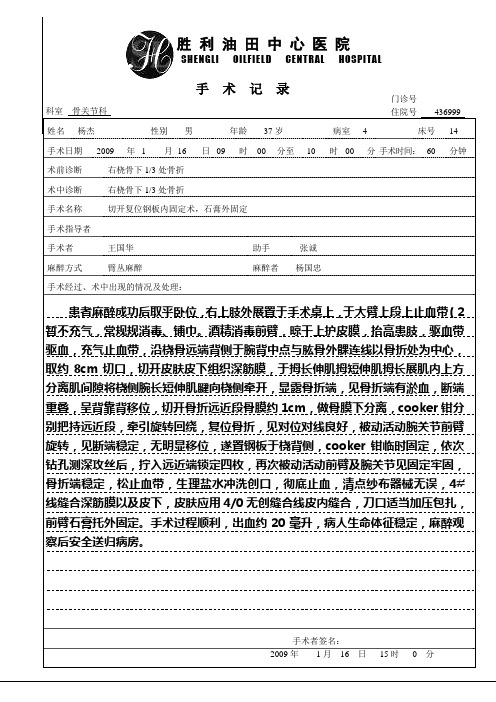 胜利油田中心医院
SHENGLI OILFIELD CENTRAL HOSPITAL
手 术 记 录
门诊号
科室 骨关节科 住院号 436999
姓名 杨杰 性别 男 年龄 37岁 病室 4 床号 14
手术日期 2009 年 1 月 16 日 09 时 00 分至 10 时 00 分 手术时间: 60 分钟
术前诊断 右桡骨下1/3处骨折
术中诊断 右桡骨下1/3处骨折
手术名称 切开复位钢板内固定术,石膏外固定
手术指导者
手术者 王国华 助手 张诚
麻醉方式 臂丛麻醉 麻醉者 杨国忠
手术经过、术中出现的情况及处理:
患者麻醉成功后取平卧位,右上肢外展置于手术桌上,于大臂上段上止血带(2
暂不充气,常规规消毒、铺巾。酒精消毒前臂,晾干上护皮膜,抬高患肢,驱血带
驱血,充气止血带,沿桡骨远端背侧于腕背中点与肱骨外髁连线以骨折处为中心,
取约 8cm 切口,切开皮肤皮下组织深筋膜,于拇长伸肌拇短伸肌拇长展肌内上方
分离肌间隙将桡侧腕长短伸肌腱向桡侧牵开,显露骨折端,见骨折端有淤血,断端
重叠,呈背靠背移位,切开骨折远近段骨膜约1cm,做骨膜下分离,cooker钳分
别把持远近段,牵引旋转回绕,复位骨折,见对位对线良好,被动活动腕关节前臂
旋转,见断端稳定,无明显移位,遂置钢板于桡背侧,cooker 钳临时固定,依次
钻孔测深攻丝后,拧入远近端锁定四枚,再次被动活动前臂及腕关节见固定牢固,
骨折端稳定,松止血带,生理盐水冲洗创口,彻底止血,清点纱布器械无误,4#
线缝合深筋膜以及皮下,皮肤应用4/0无创缝合线皮内缝合,刀口适当加压包扎,
前臂石膏托外固定。手术过程顺利,出血约20毫升,病人生命体征稳定,麻醉观
察后安全送归病房。
手术者签名:
2009年 1月 16 日 15时 0 分